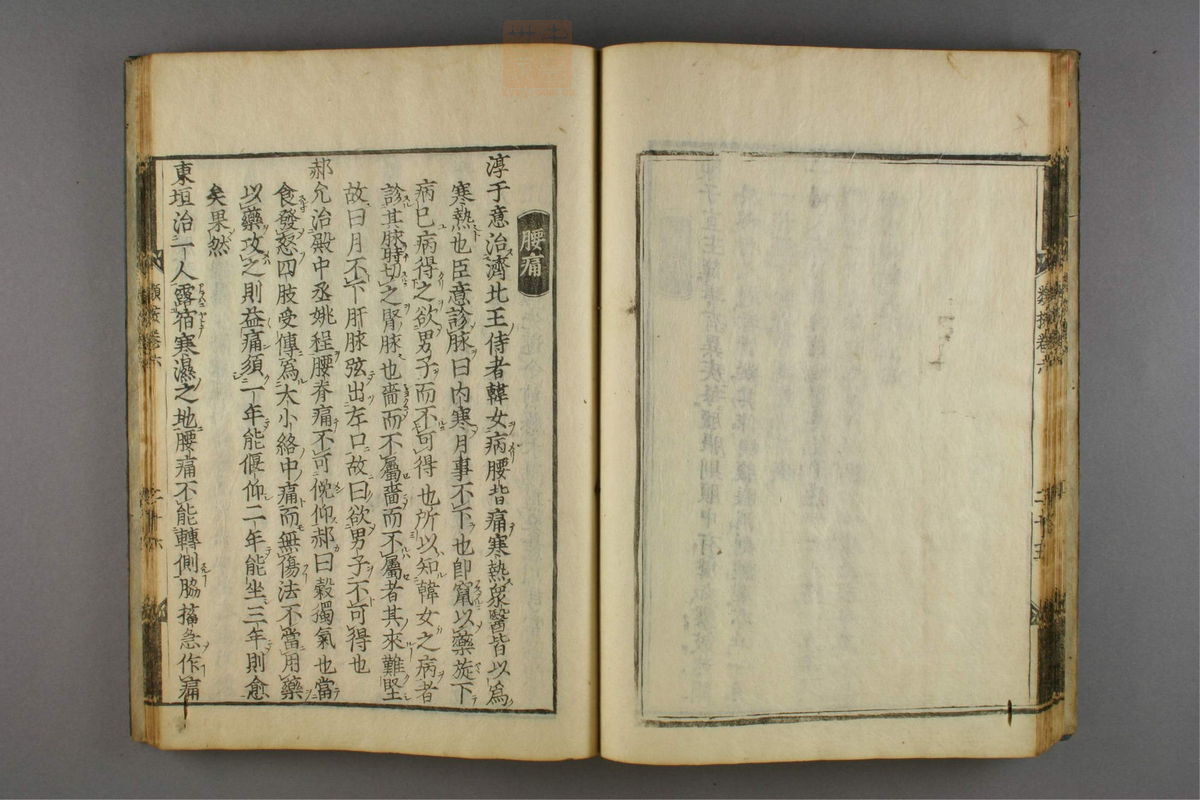 類按卷六
二十五
腰痛
淳于意治濟北王侍者韓女病腰背痛寒熱衆醫皆以爲
寒熱也臣意診脉曰内寒月事不下也即竄以藥旋下
病已病得之欲男子而不可得也所以知韓女之病者
診其脉時切之腎脉也嗇而不屬嗇而不屬者其來難堅
故曰月不下肝脉弦出左口故曰欲男子不可得也
郝允治殿中丞姚程腰脊痛不可俛仰郝曰穀獨氣也當
食發怒四肢受傳爲大小絡中痛而無傷法不當用藥
以藥攻之則益痛須一年能偃仰二年能坐三年則愈
矣果然
東垣治一人露宿寒濕之地腰痛不能轉側脇搐急作痛
類按卷六
二十六